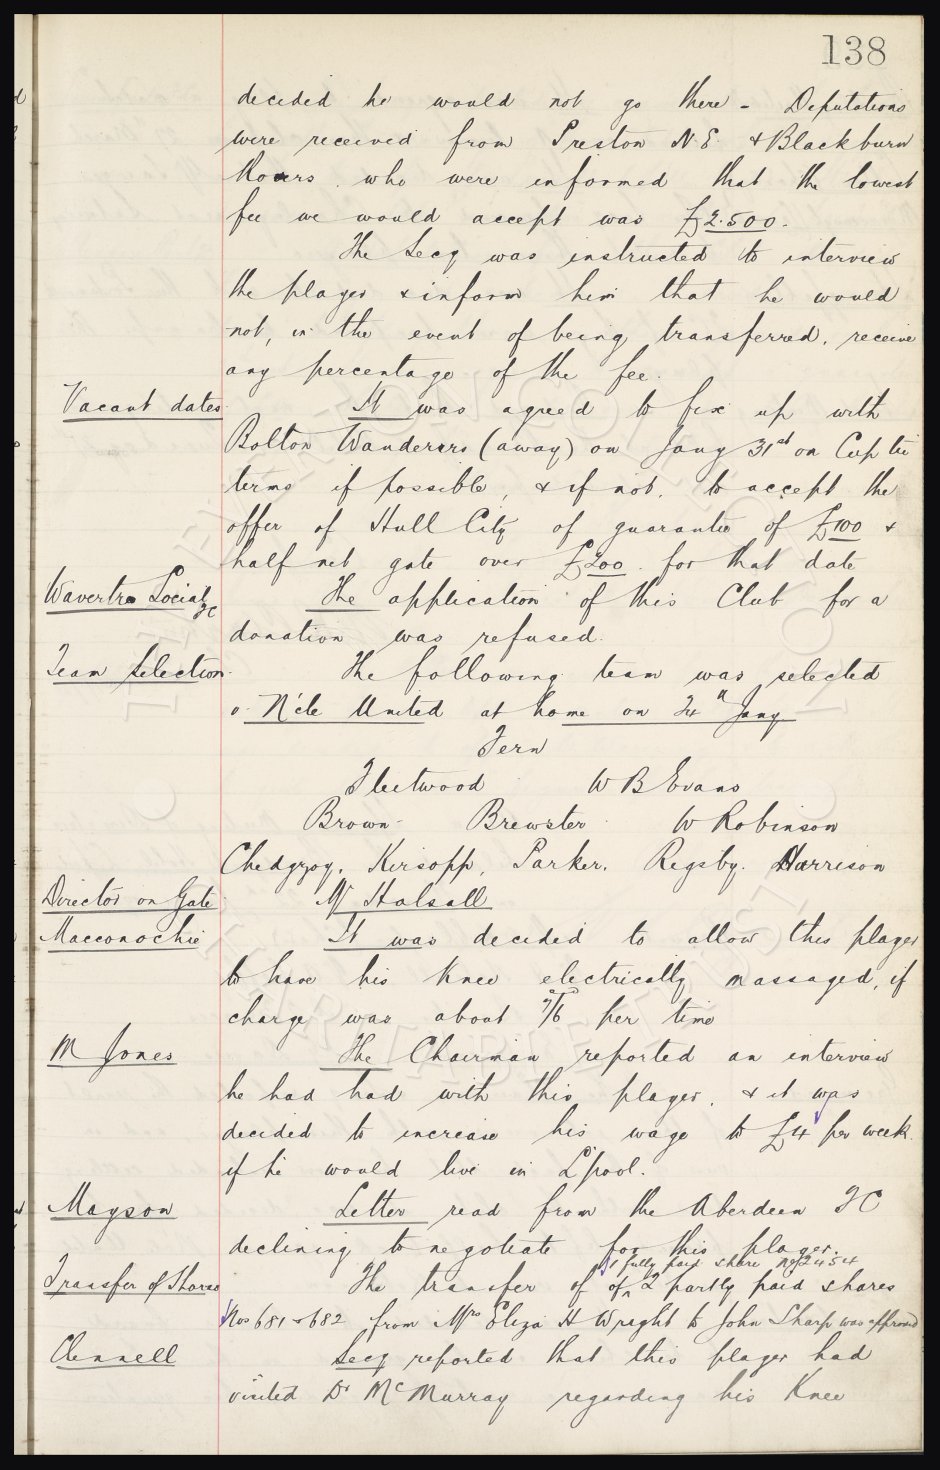 138
decided he would not go there - Deputations
were received from Preston N.E. & Blackburn
Rovers. who were informed that the lowest
fee we would accept was £2.500.
The Secy was instructed to interview
the player & inform him that he would
not, in the event of being transferred, receive
any percentage of the fee.
Vacant dates. It was agreed to fix up with
Bolton Wanderers (away) on Jany 31st on Cup tie
terms if possible, & if not, to accept the
offer of Hull City of guarantee of £100 &
half net gate over £200. for that date
Wavertree Social FC The application of this Club for a
donation was refused.
Team Selection. The following team was selected
v. N'cle United at home on 24th Jany
Fern
Fleetwood W B Evans
Brown Brewster W Robinson
Chedgzoy, Kirsopp, Parker. Rigsby. Harrison
Director on Gate Mr Halsall
Macconochie It was decided to allow this player
to have his Knee electrically massaged, if
charge was about 7/6 per time
M Jones The Chairman reported an interview
he had had with this player, & it was
decided to increase his wage to £4 per week.
if he would live in L'pool.
Mayson Letter read from the Aberdeen FC
declining to negotiate for this player.
1 fully paid share No 2454
Transfer of Shares The transfer of of 2 partly paid shares
Nos 681 & 682 from Mrs Eliza H Wright to John Sharp was approved
Clennell Secy reported that this player had
visited Dr McMurray regarding his Knee